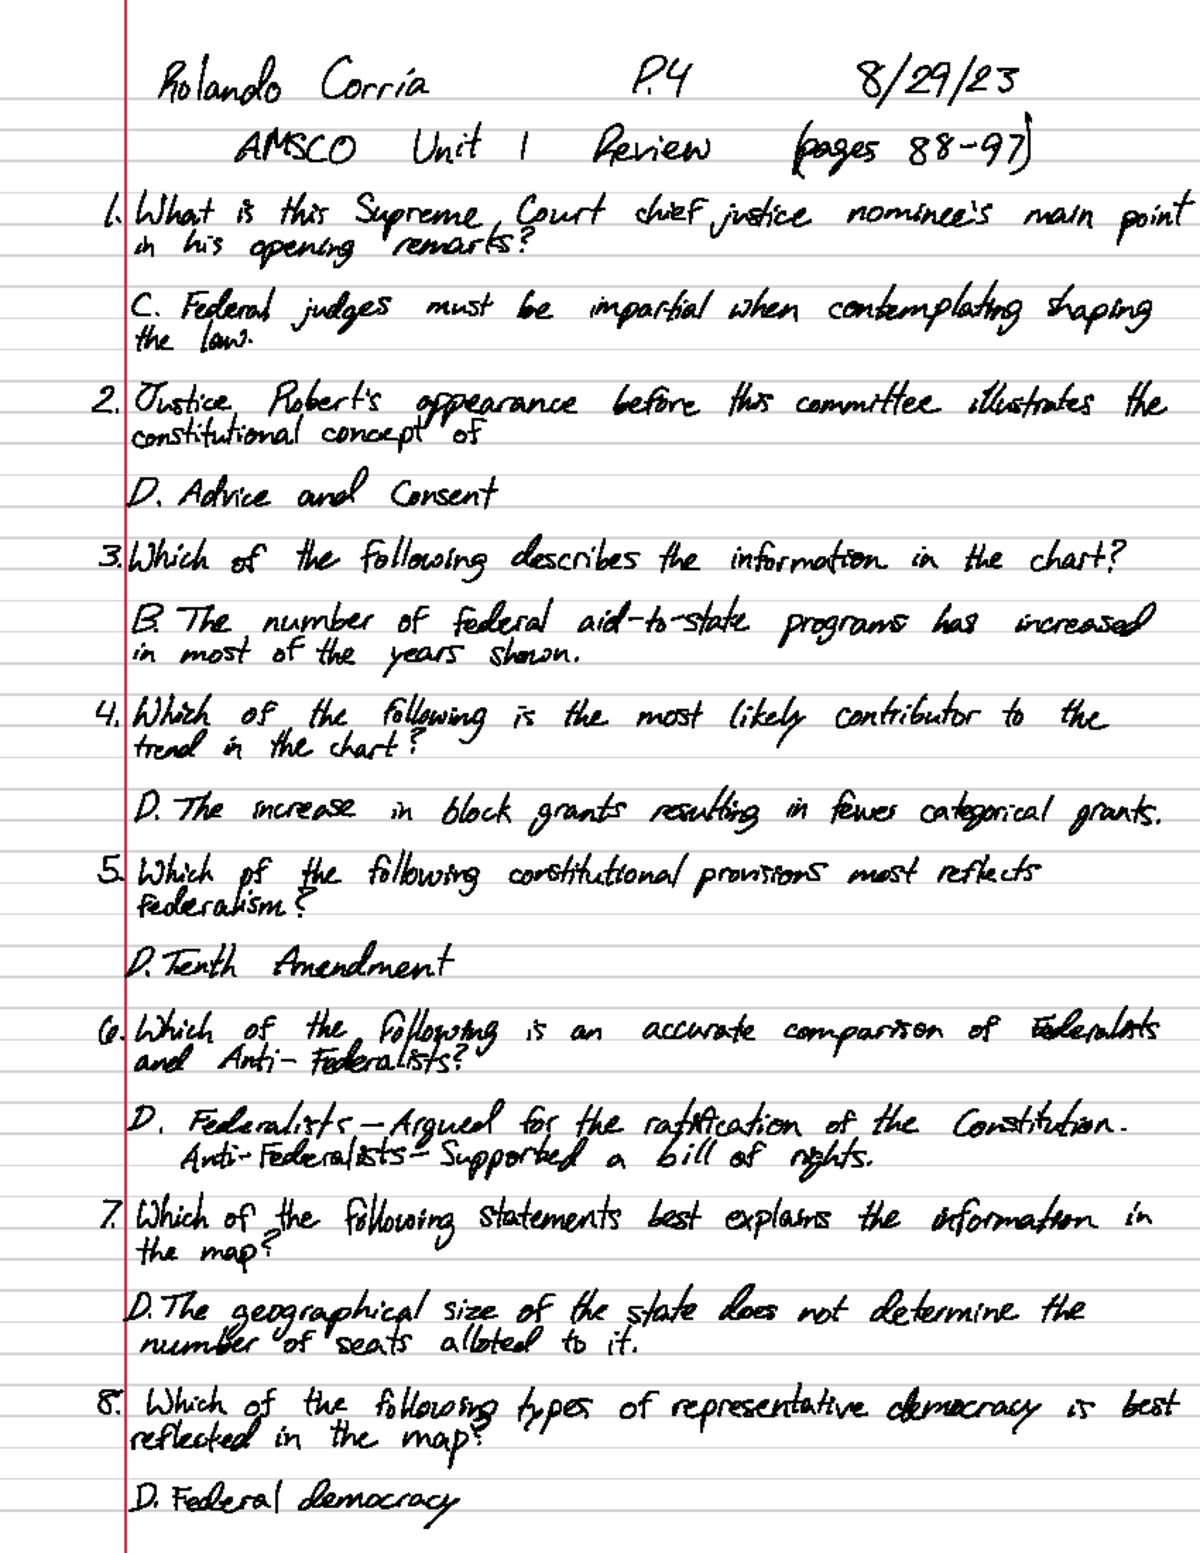 Rolando Corría P.4 8/29/23
AMSCO Unit 1 Review (pages 88-97)
1. What is this Supreme Court chief justice nominee's main point
in his opening remarks?
C. Federal judges must be impartial when contemplating shaping
the law.
2. Justice Robert's appearance before this committee illustrates the
constitutional concept of
D. Advice and Consent
3. Which of the following describes the information in the chart?
B. The number of federal aid-to-state programs has increased
in most of the years shown.
4. Which of the following is the most likely contributor to the
trend in the chart?
D. The increase in block grants resulting in fewer categorical grants.
5. Which of the following constitutional provisions most reflects
Federalism?
D. Tenth Amendment
6. Which of the following is an accurate comparison of Federalists
and Anti-Federalists?
D. Federalists - Argued for the ratification of the Constitution.
Anti-Federalists - Supported a bill of rights.
7. Which of the following statements best explains the information in
the map?
D. The geographical size of the state does not determine the
number of seats alloted to it.
8. Which of the following types of representative democracy is best
reflected in the map?
D. Federal democracy